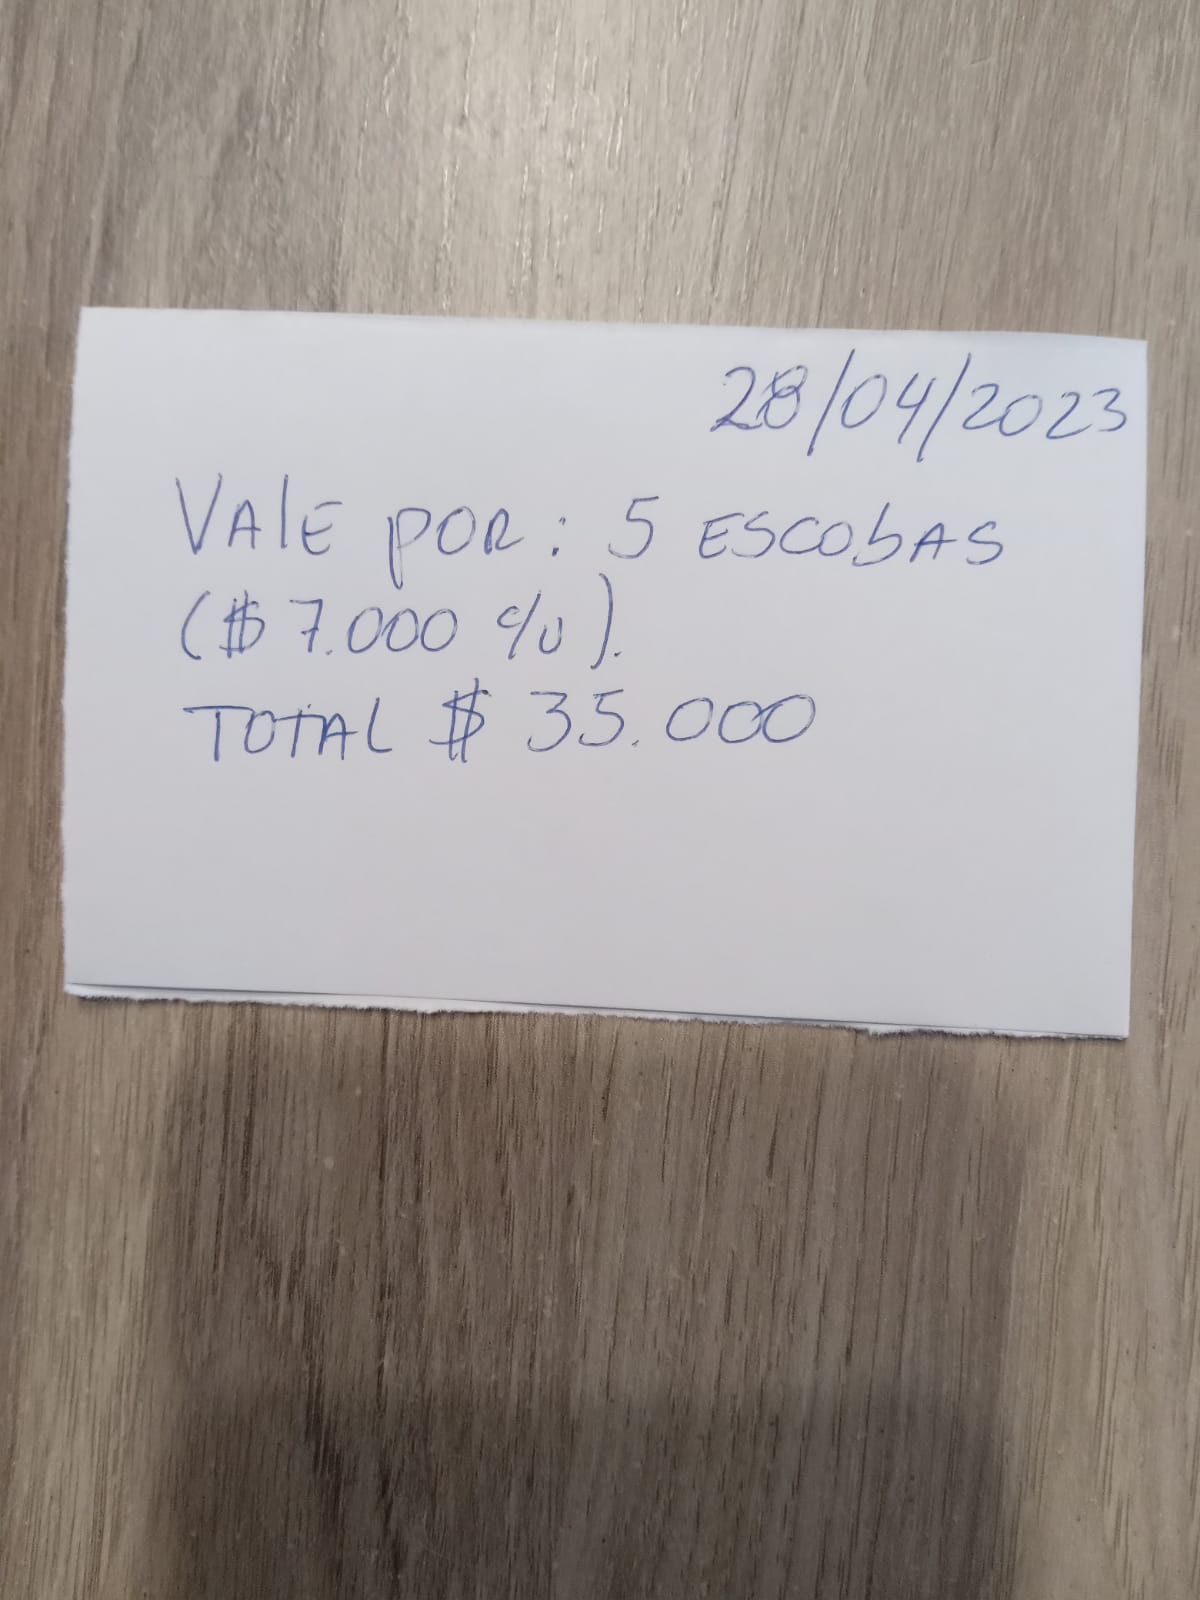 28/04/2023
VALE POR: 5 ESCOBAS
($ 7.000 c/u).
TOTAL $ 35.000